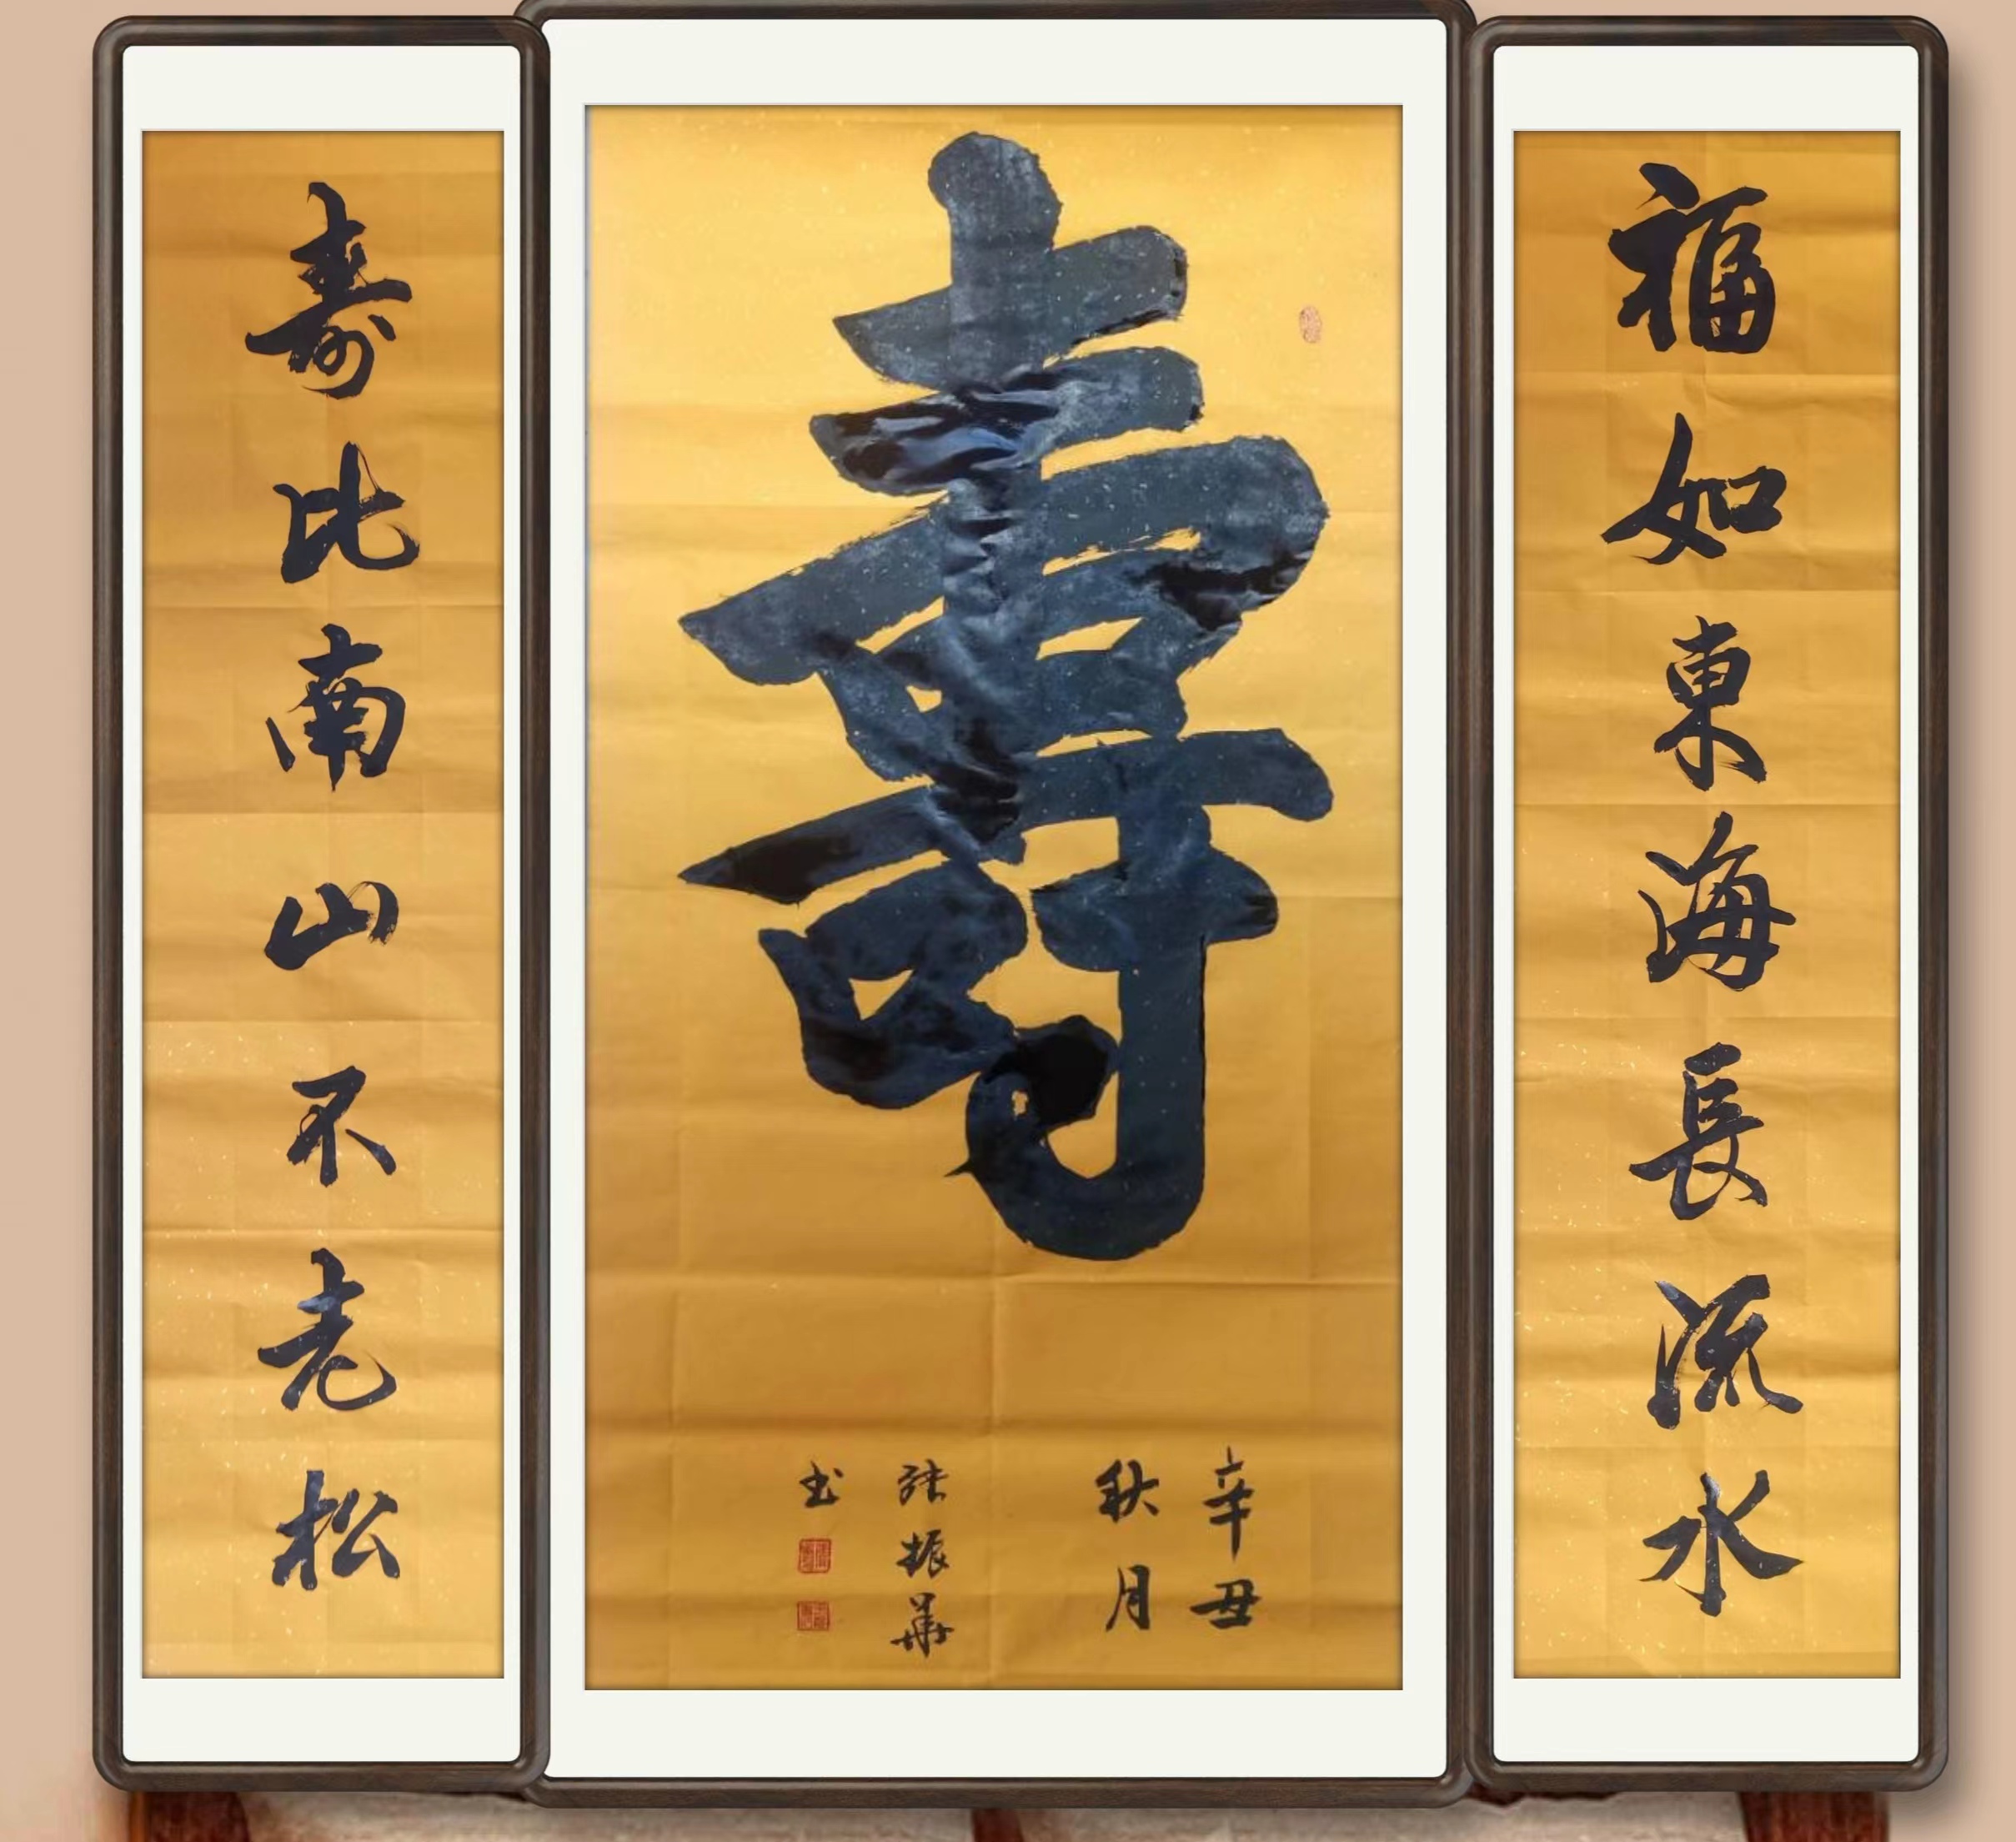 福如東海長流水
壽
辛丑
秋月
張振華
书
寿比南山不老松